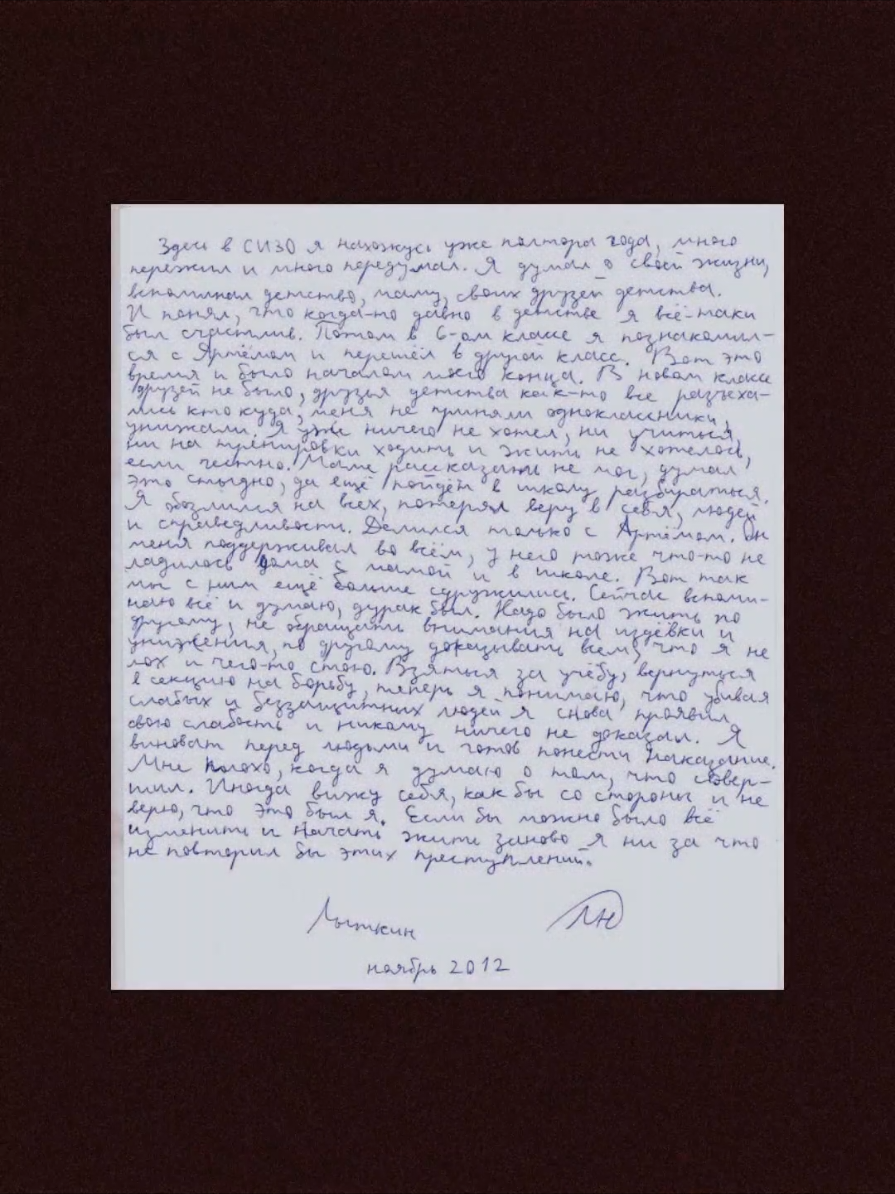 Здесь в СИЗО я нахожусь уже полтора года, много
пережил и много передумал. Я думал о своей жизни,
вспоминал детство, маму, своих друзей детства.
И понял, что когда-то давно в детстве я всё-таки
был счастлив. Потом в 6-ом классе я познакомил-
ся с Артёмом и перешёл в другой класс. Вот это
время и было началом моего конца. В новом классе
друзей не было, друзья детства как-то все разъеха-
лись кто куда, меня не приняли одноклассники,
унижали. Я уже ничего не хотел, ни учиться,
ни на тренировки ходить и жить не хотелось,
если честно. Маме рассказать не мог, думал
это стыдно, да ещё пойдёт в школу разбираться.
Я обозлился на всех, потерял веру в себя, людей
и справедливость. Делился только с Артёмом. Он
меня поддерживал во всём, у него тоже что-то не
ладилось дома с мамой и в школе. Вот так
мы с ним ещё больше сдружились. Сейчас вспоми-
наю всё и думаю, дурак был. Надо было жить по
другому, не обращать внимания на издёвки и
унижения, по другому доказывать всем, что я не
лох и чего-то стою. Взяться за учёбу, вернуться
в секцию на борьбу, теперь я понимаю, что убивая
слабых и беззащитных людей я снова проявил
свою слабость и никому ничего не доказал. Я
виноват перед людьми и готов понести наказание.
Мне плохо, когда я думаю о том, что совер-
шил. Иногда вижу себя, как бы со стороны и не
верю, что это был я. Если бы можно было всё
изменить и начать жить заново я ни за что
не повторил бы этих преступлений.
Лыткин
ноябрь 2012